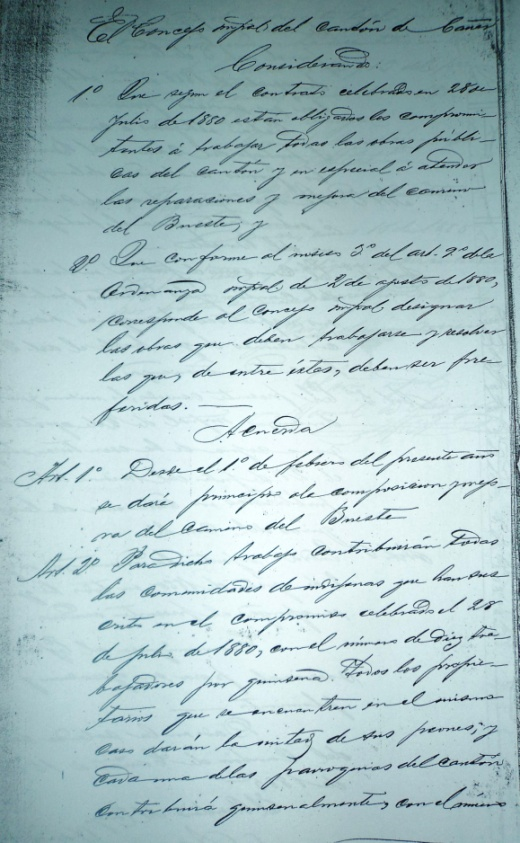 El Concejo mpal. del cantón de Cañar
Considerando:
1º Que segun el contrato celebrado en 28 de
Julio de 1880 están obligados los comprome-
tentes á trabajar todas las obras públi-
cas del cantón y en especial á atender
las reparaciones y mejora del camino
del Bueste, y
2º Que conforme al inciso 2º del art. 2º de la
Ordenanza mpal. de 2 de agosto de 1880,
corresponde al Concejo mpal. designar
las obras que deban trabajarse y resolver
las que, de entre éstas, deban ser pre-
feridas. —
Acuerda
Art. 1º Desde el 1º de febrero del presente año
se dará principio a la composicion y mejo-
ra del camino del Bueste
Art. 2º Para dicho trabajo contribuirán todas
las comunidades de indígenas que han sus-
crito en el compromiso celebrado el 28
de Julio de 1880, con el número de diez tra-
bajadores por quinsena. Todos los propie-
tarios que se encuentren en el mismo
caso darán la mitad de sus peones; y
cada una de las parroquias del cantón
contribuirá quinsenalmente, con el número